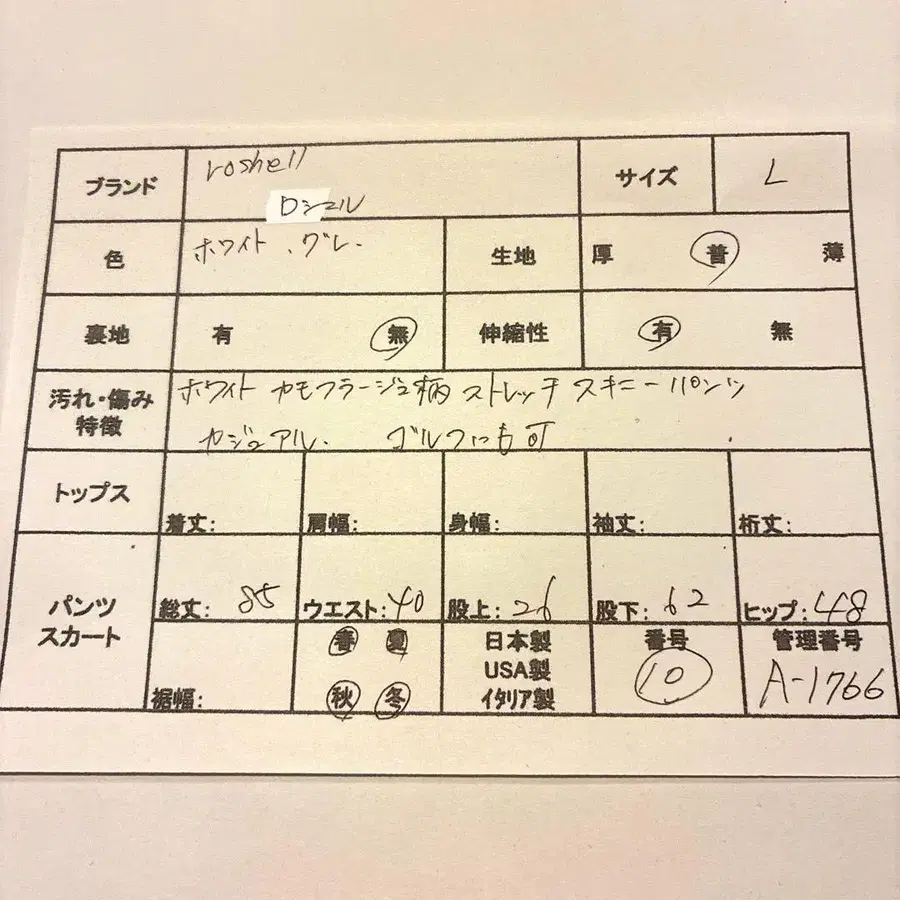 ブランド roshell サイズ L
ロシェル
色 ホワイト、グレー 生地 厚 普 薄
裏地 有 無 伸縮性 有 無
汚れ・傷み ホワイト カモフラージュ柄 ストレッチ スキニーパンツ
特徴 カジュアル. ゴルフにも可
トップス 着丈: 肩幅: 身幅: 袖丈: 裄丈:
パンツ 総丈: 85 ウエスト: 40 股上: 26 股下: 62 ヒップ: 48
スカート 春 夏 日本製 番号 管理番号
USA製 10 A-1766
裾幅: 秋 冬 イタリア製